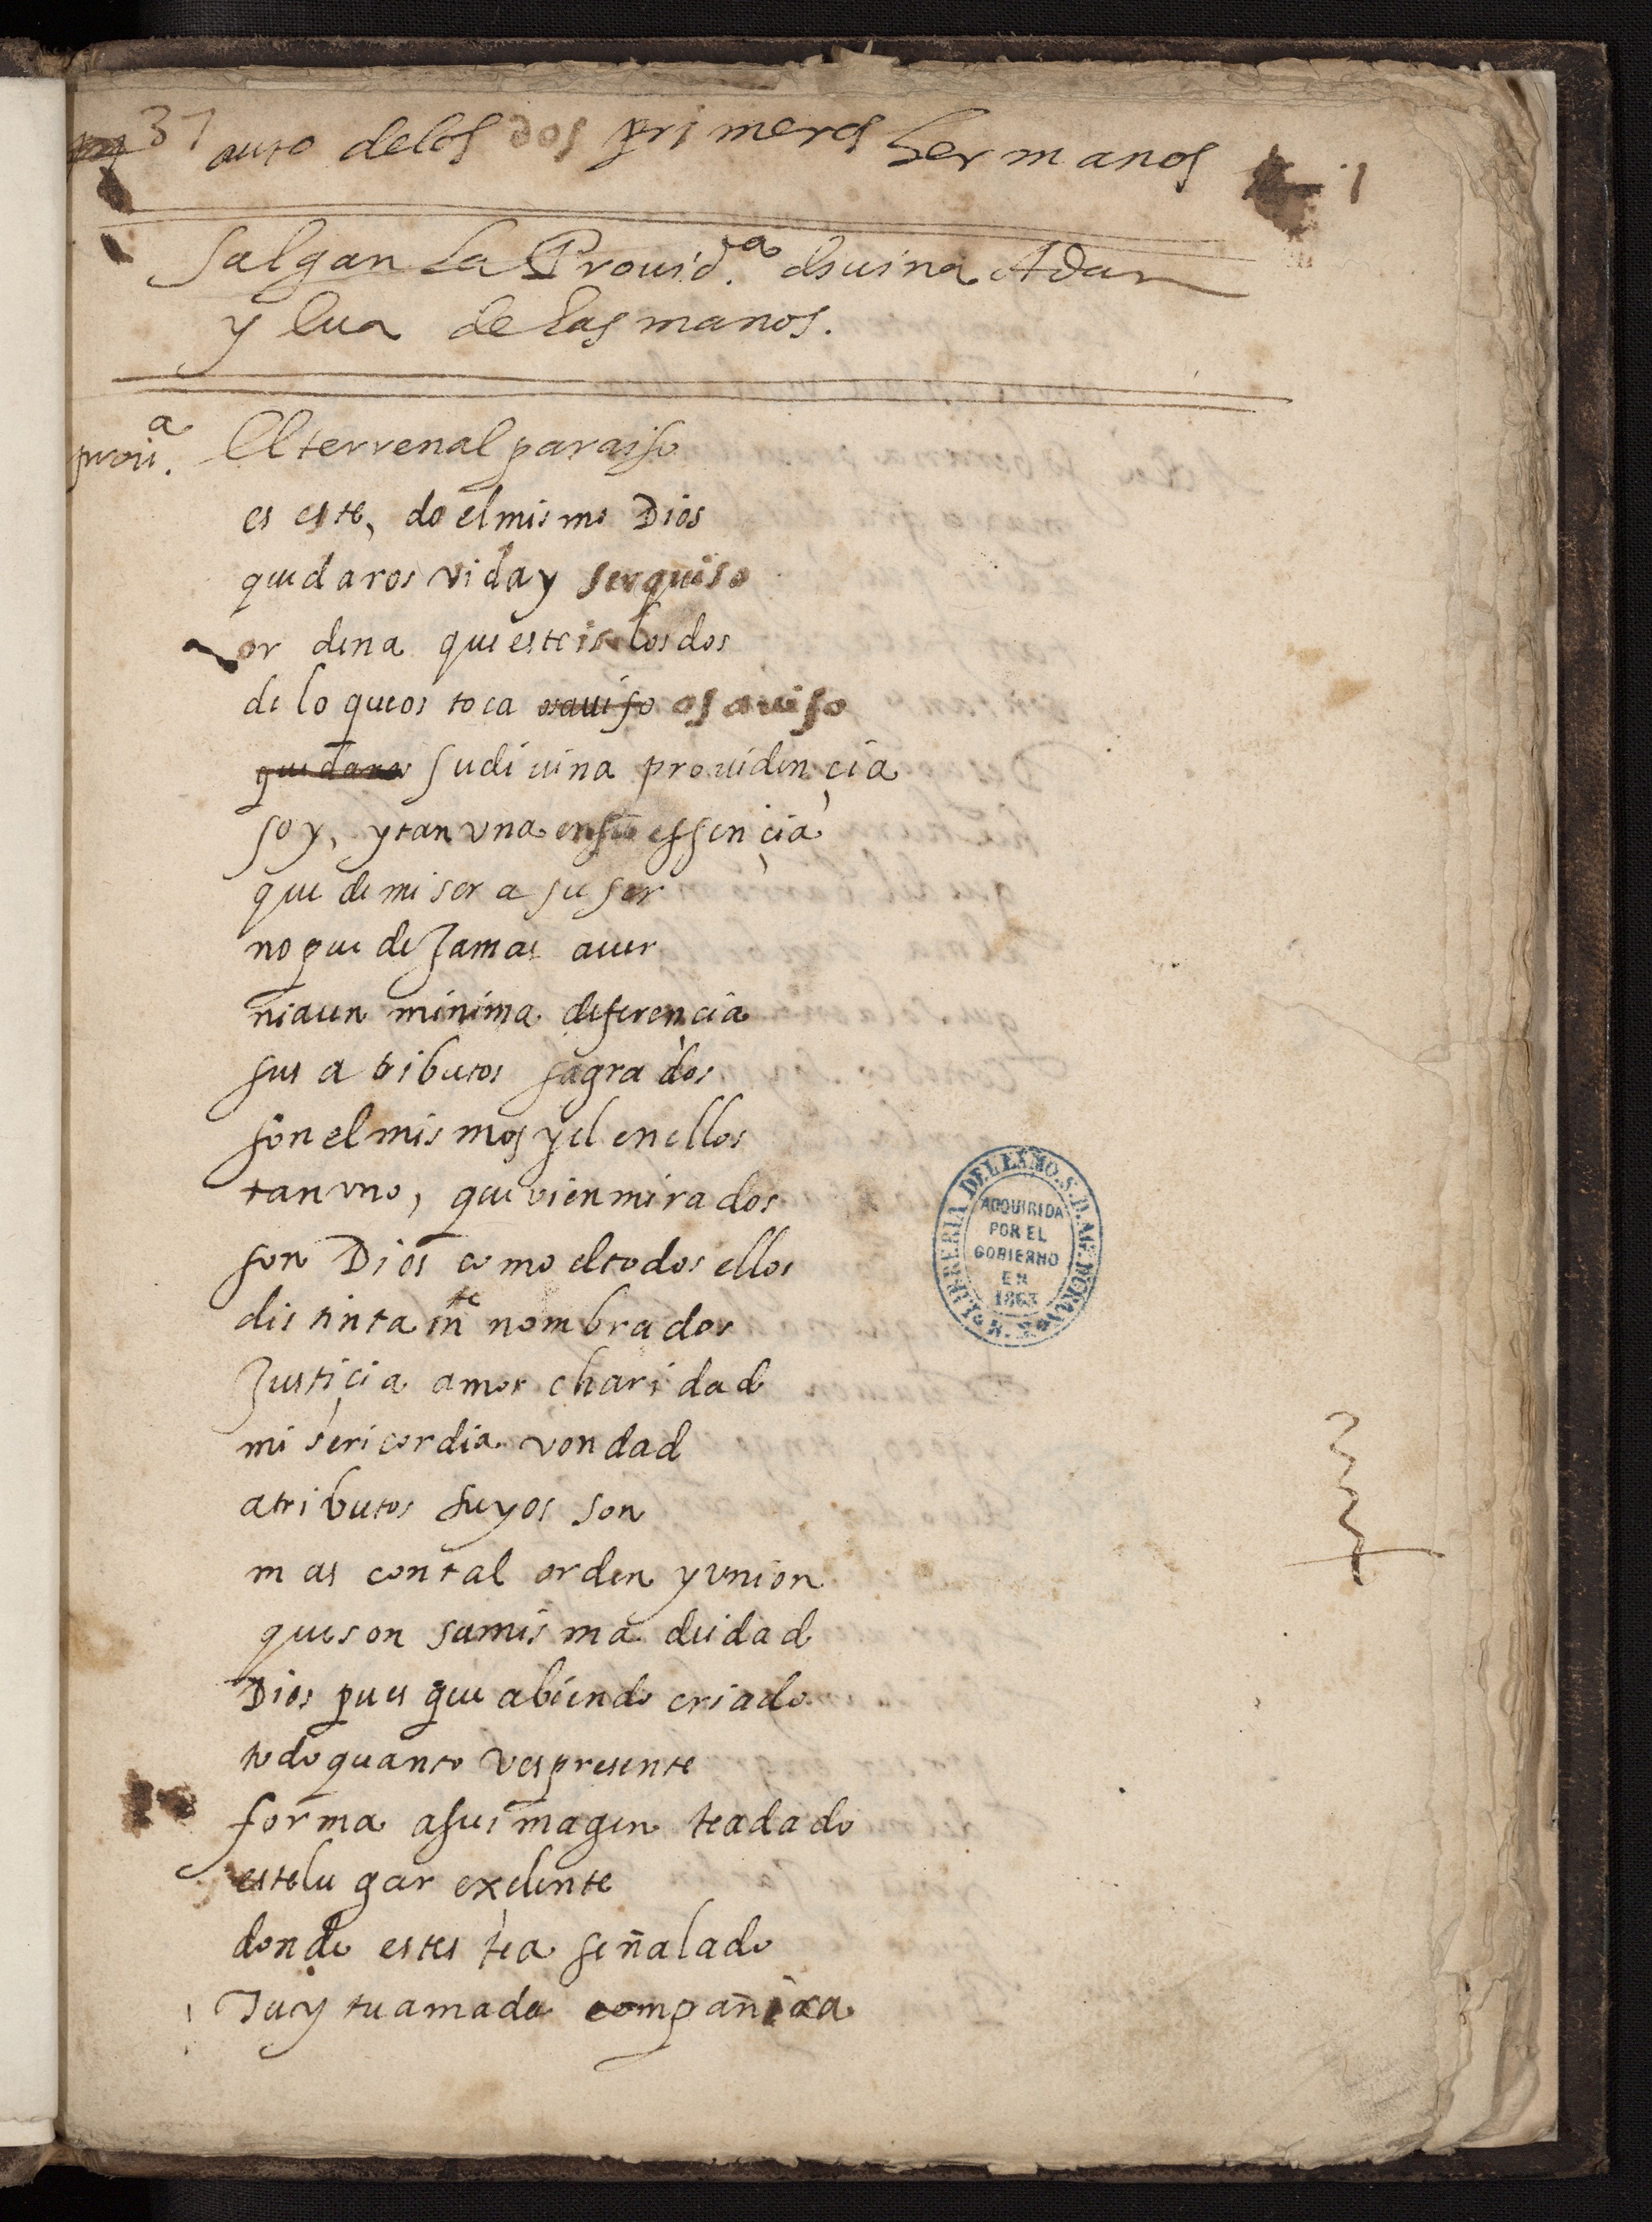 37 auto delos dos primeros hermanos 1
Salgan La Provid.ª divina Adan
y Eua de las manos.
proui.ª El terrenal paraiso
es este, do el mismo Dios
que daros vida y ser quiso
ordena que esteis los dos
de lo que os toca os auiso os auiso
que daros su diuina prouidençia
soy, y tan vna en su essençia
que de mi ser a su ser
no puede Jamas auer
ni aun minima diferençia
sus atributos sagrados
son el mismos y el en ellos
tan vno, que vien mirados
son Dios como el todos ellos
distintamte nombrados
Justiçia amor charidad
misericordia vondad
atributos suyos son
mas con tal orden y vnion
que son su misma deidad
Dios pues que abiendo criado
todo quanto ves presente
forma a su imagen te a dado
este lugar exçelente
donde estes te a señalado
Tu y tu amada compañia
LIBRERIA DEL EXMO. S. D. AG. DURAN
ADQUIRIDA
POR EL
GOBIERNO
EN
1863